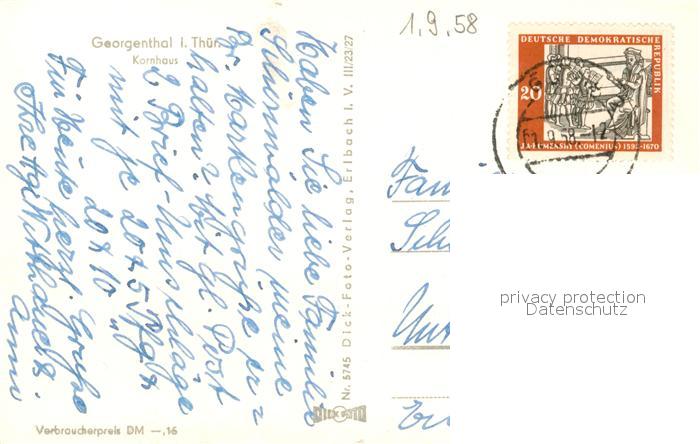 1.9.58
Georgenthal i. Thür.
Kornhaus
DEUTSCHE DEMOKRATISCHE
REPUBLIK
20
J.A. KOMENSKÝ (COMENIUS) 1592-1670
Haben Sie liebe Familie
meine
halten? Mit gl. Post
2 Brief-Umschläge
mit je 20 x 5 Pfg &
20 x 10 "
Für Heute herzl. Grüße
Ihre
Anni
Nr. 5745 Dick-Foto-Verlag, Erlbach i. V. III/23/27
DICK FOTO
Fam
Verbraucherpreis DM —,16
privacy protection
Datenschutz